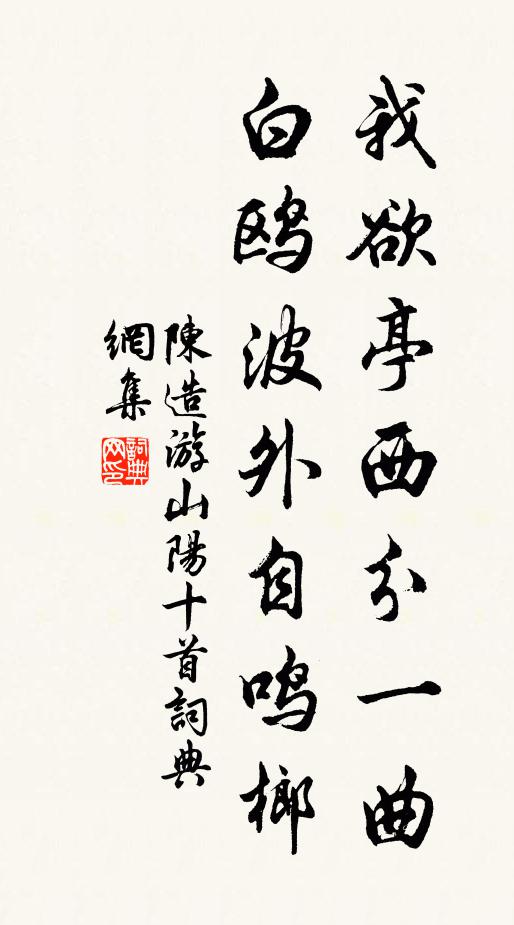 我欲亭西分一曲
白鸥波外自鸣榔
陳造游山陽十首詞典
網集
詞典
网印